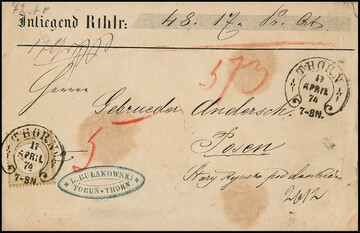 Inliegend Rthlr: 48. 17. Pr. Ct.
573
THORN
17
APRIL
74
7-8N.
Herren
Gebrueder Andersch.
THORN
17
APRIL
74
7-8N.
5
Posen
L. BULAKOWSKI
TORUN=THORN
Stary rynek pod
2612